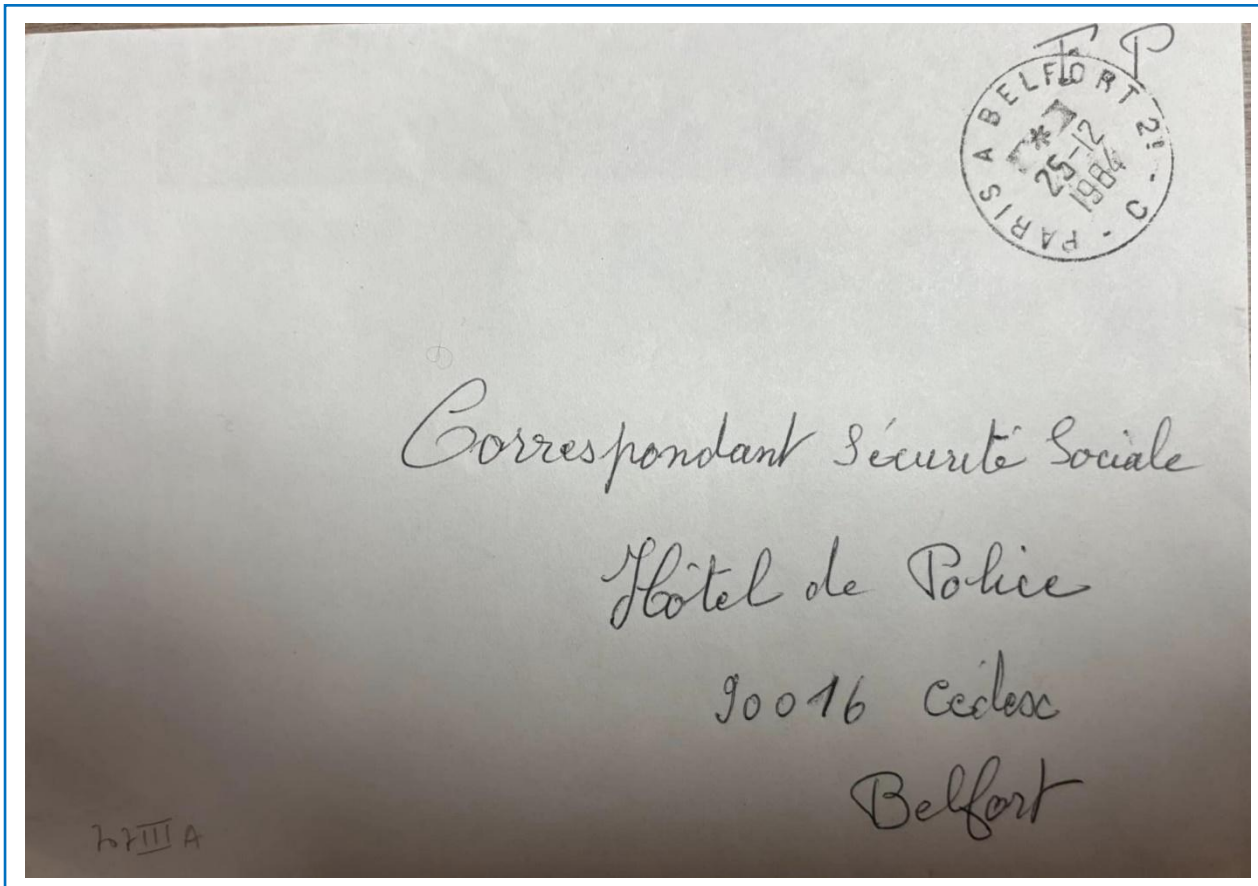 F P
PARIS A BELFORT 2° - C -
*
25-12
1984
Correspondant Sécurité Sociale
Hôtel de Police
90016 Cédex
Belfort
III A